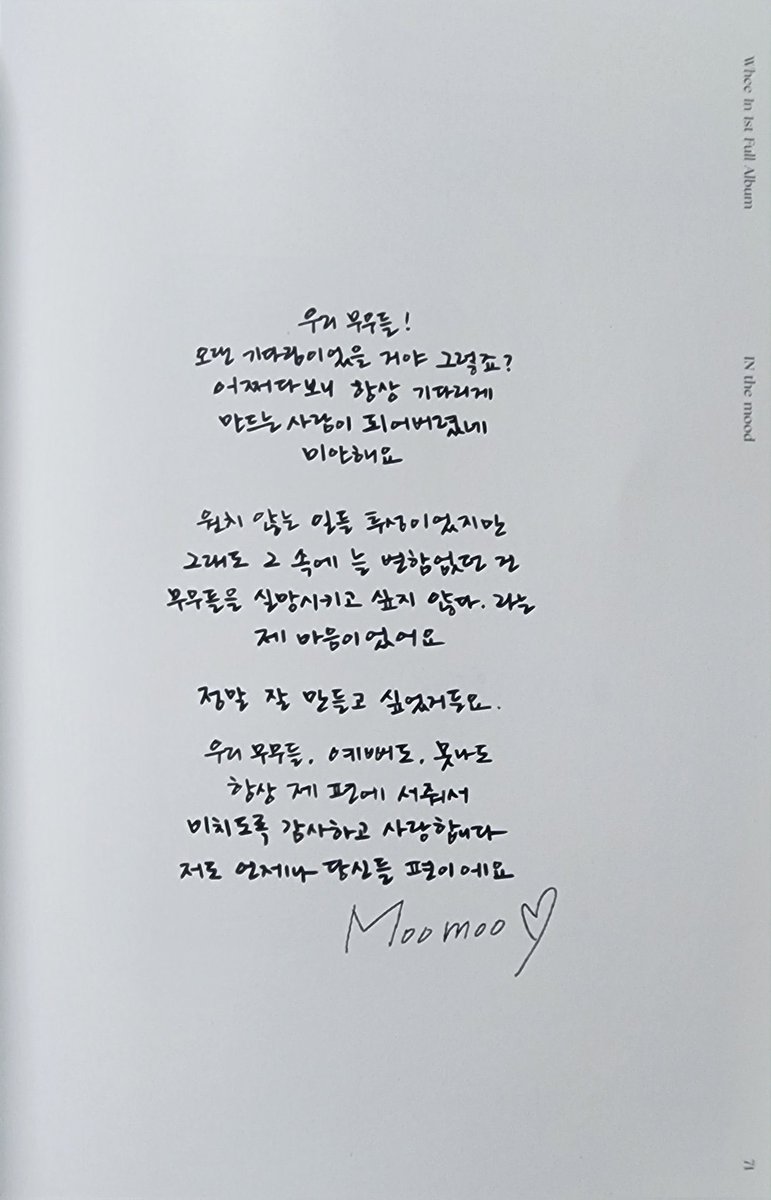 우리 무무들!
오랜 기다림이었을 거야 그렇죠?
어쩌다보니 항상 기다리게
만드는 사람이 되어버렸네
미안해요
원치 않는 일들 투성이었지만
그래도 그 속에 늘 변함없던 건
무무들을 실망시키고 싶지 않다. 라는
제 마음이었어요
정말 잘 만들고 싶었거든요.
우리 무무들, 예뻐도, 못나도
항상 제 편에 서줘서
미치도록 감사하고 사랑합니다
저도 언제나 당신들 편이에요
Moomoo♡
Whee In 1st Full Album
IN the mood
71